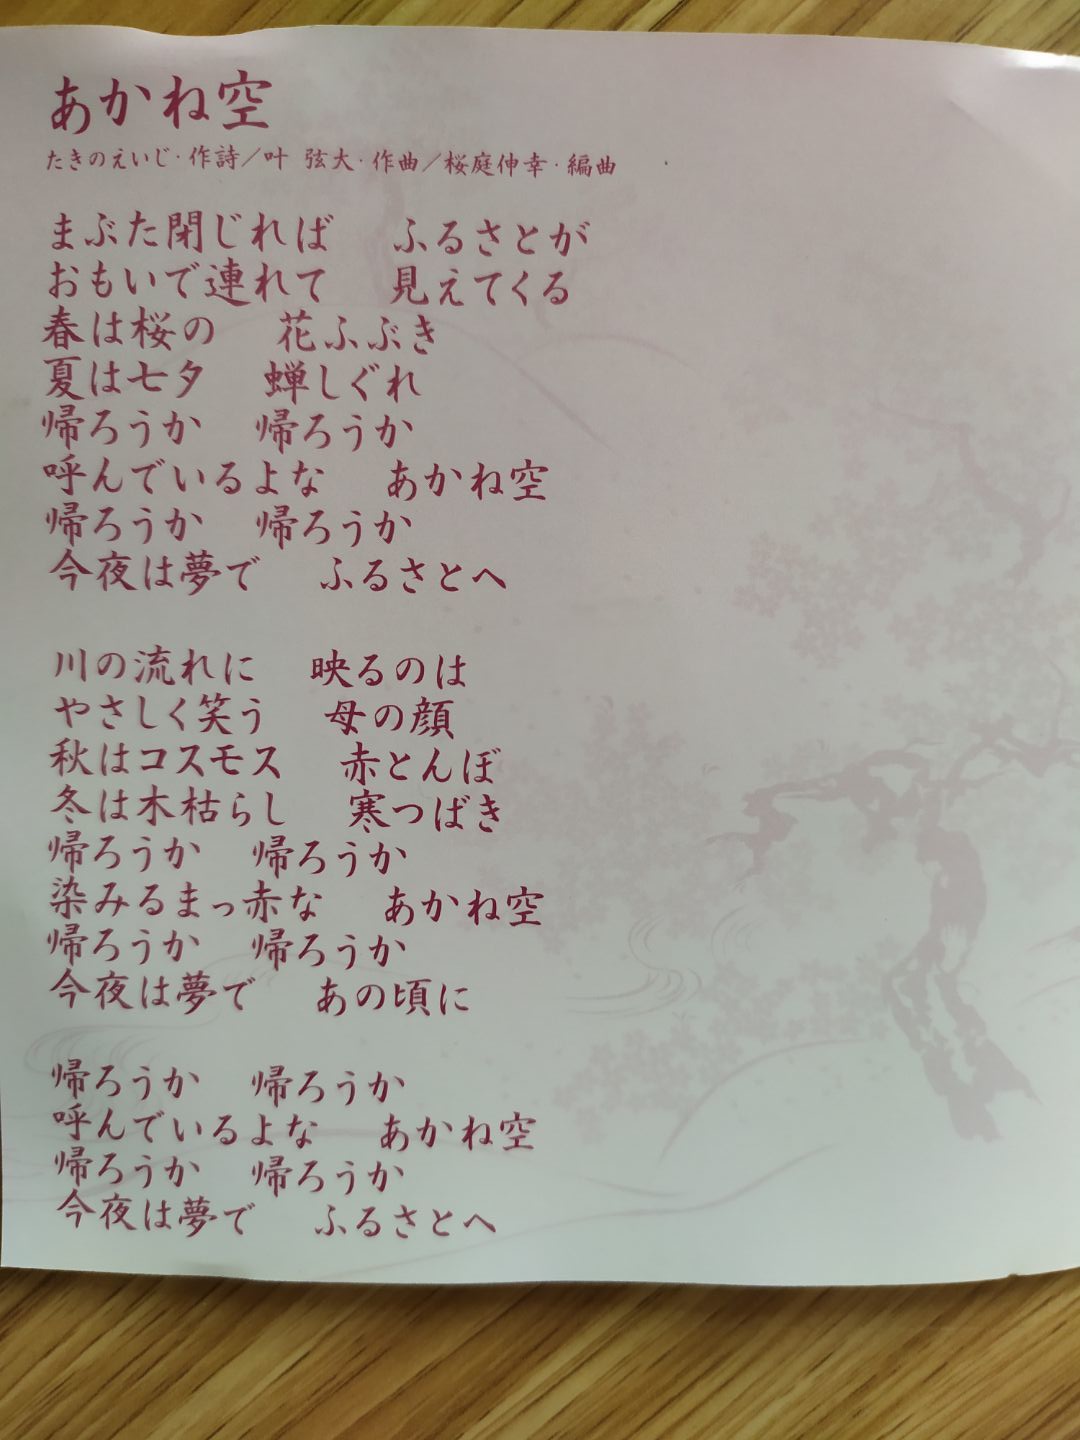 あかね空
たきのえいじ・作詩／叶 弦大・作曲／桜庭伸幸・編曲
まぶた閉じれば　ふるさとが
おもいで連れて　見えてくる
春は桜の　花ふぶき
夏は七夕　蝉しぐれ
帰ろうか　帰ろうか
呼んでいるよな　あかね空
帰ろうか　帰ろうか
今夜は夢で　ふるさとへ
川の流れに　映るのは
やさしく笑う　母の顔
秋はコスモス　赤とんぼ
冬は木枯らし　寒つばき
帰ろうか　帰ろうか
染みるまっ赤な　あかね空
帰ろうか　帰ろうか
今夜は夢で　あの頃に
帰ろうか　帰ろうか
呼んでいるよな　あかね空
帰ろうか　帰ろうか
今夜は夢で　ふるさとへ